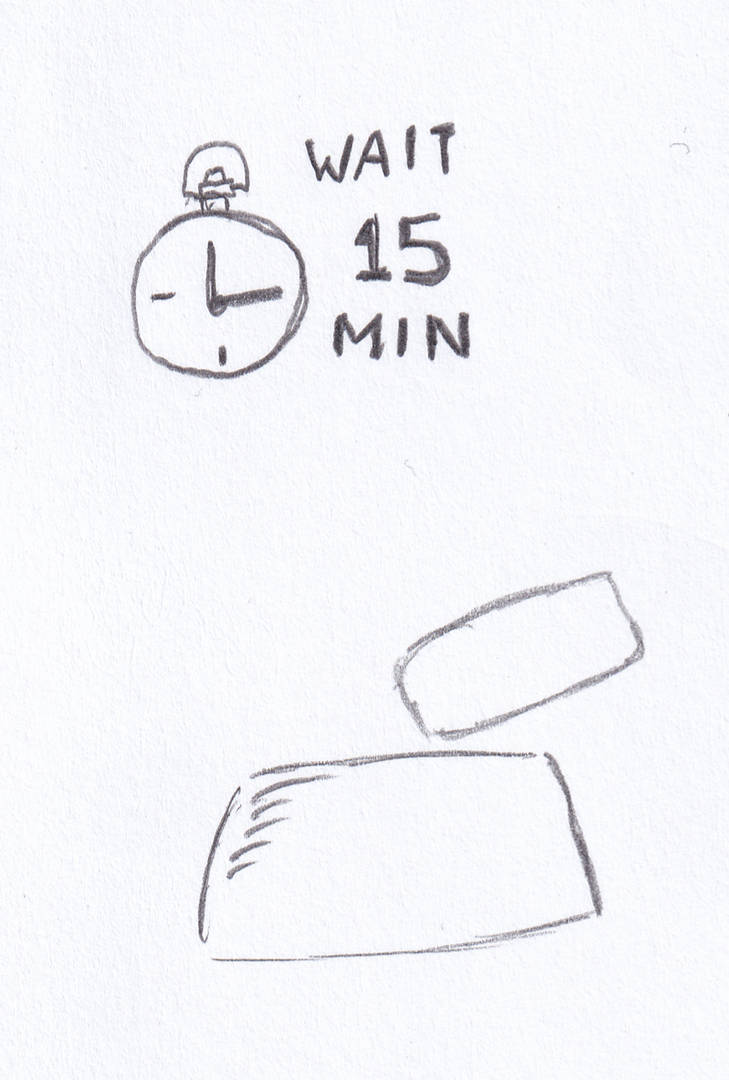 WAIT
15
MIN